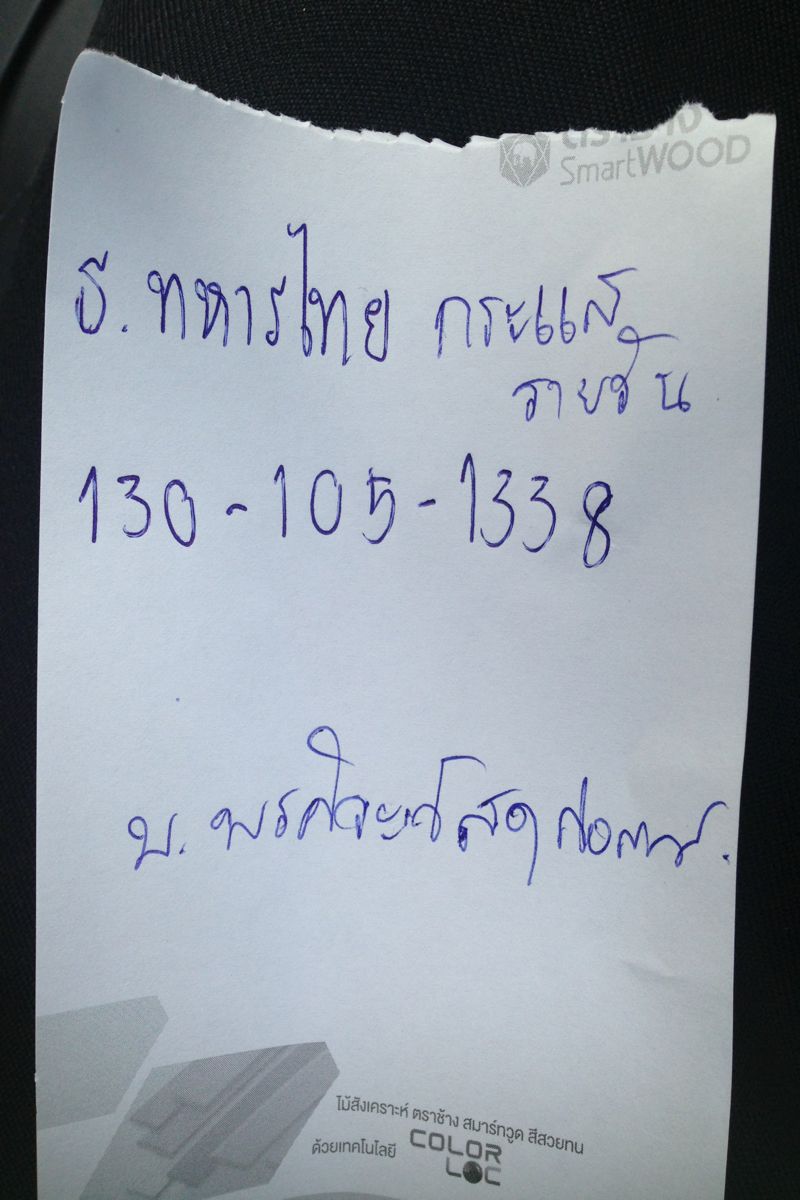 SmartWOOD
ธ. ทหารไทย กระแส
รายวัน
130-105-1338
บ.
ไม้สังเคราะห์ ตราช้าง สมาร์ทวูด สีสวยทน
ด้วยเทคโนโลยี COLOR LOC